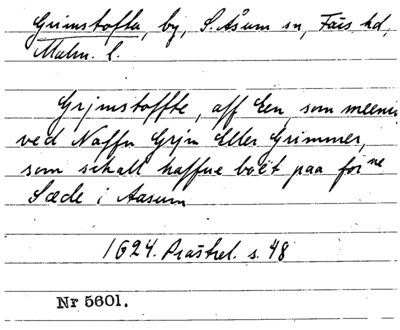 Grimstofta, by, S. Åsum sn, Färs hd,
Malm. l.
Grjmstoffte, aff Een, som meenis
ved Naffn Grjm Eller Grimmer,
som schall haffue boët paa for ne
Sæde i Aasum
1624. Prästrel. s. 48
Nr 5601.